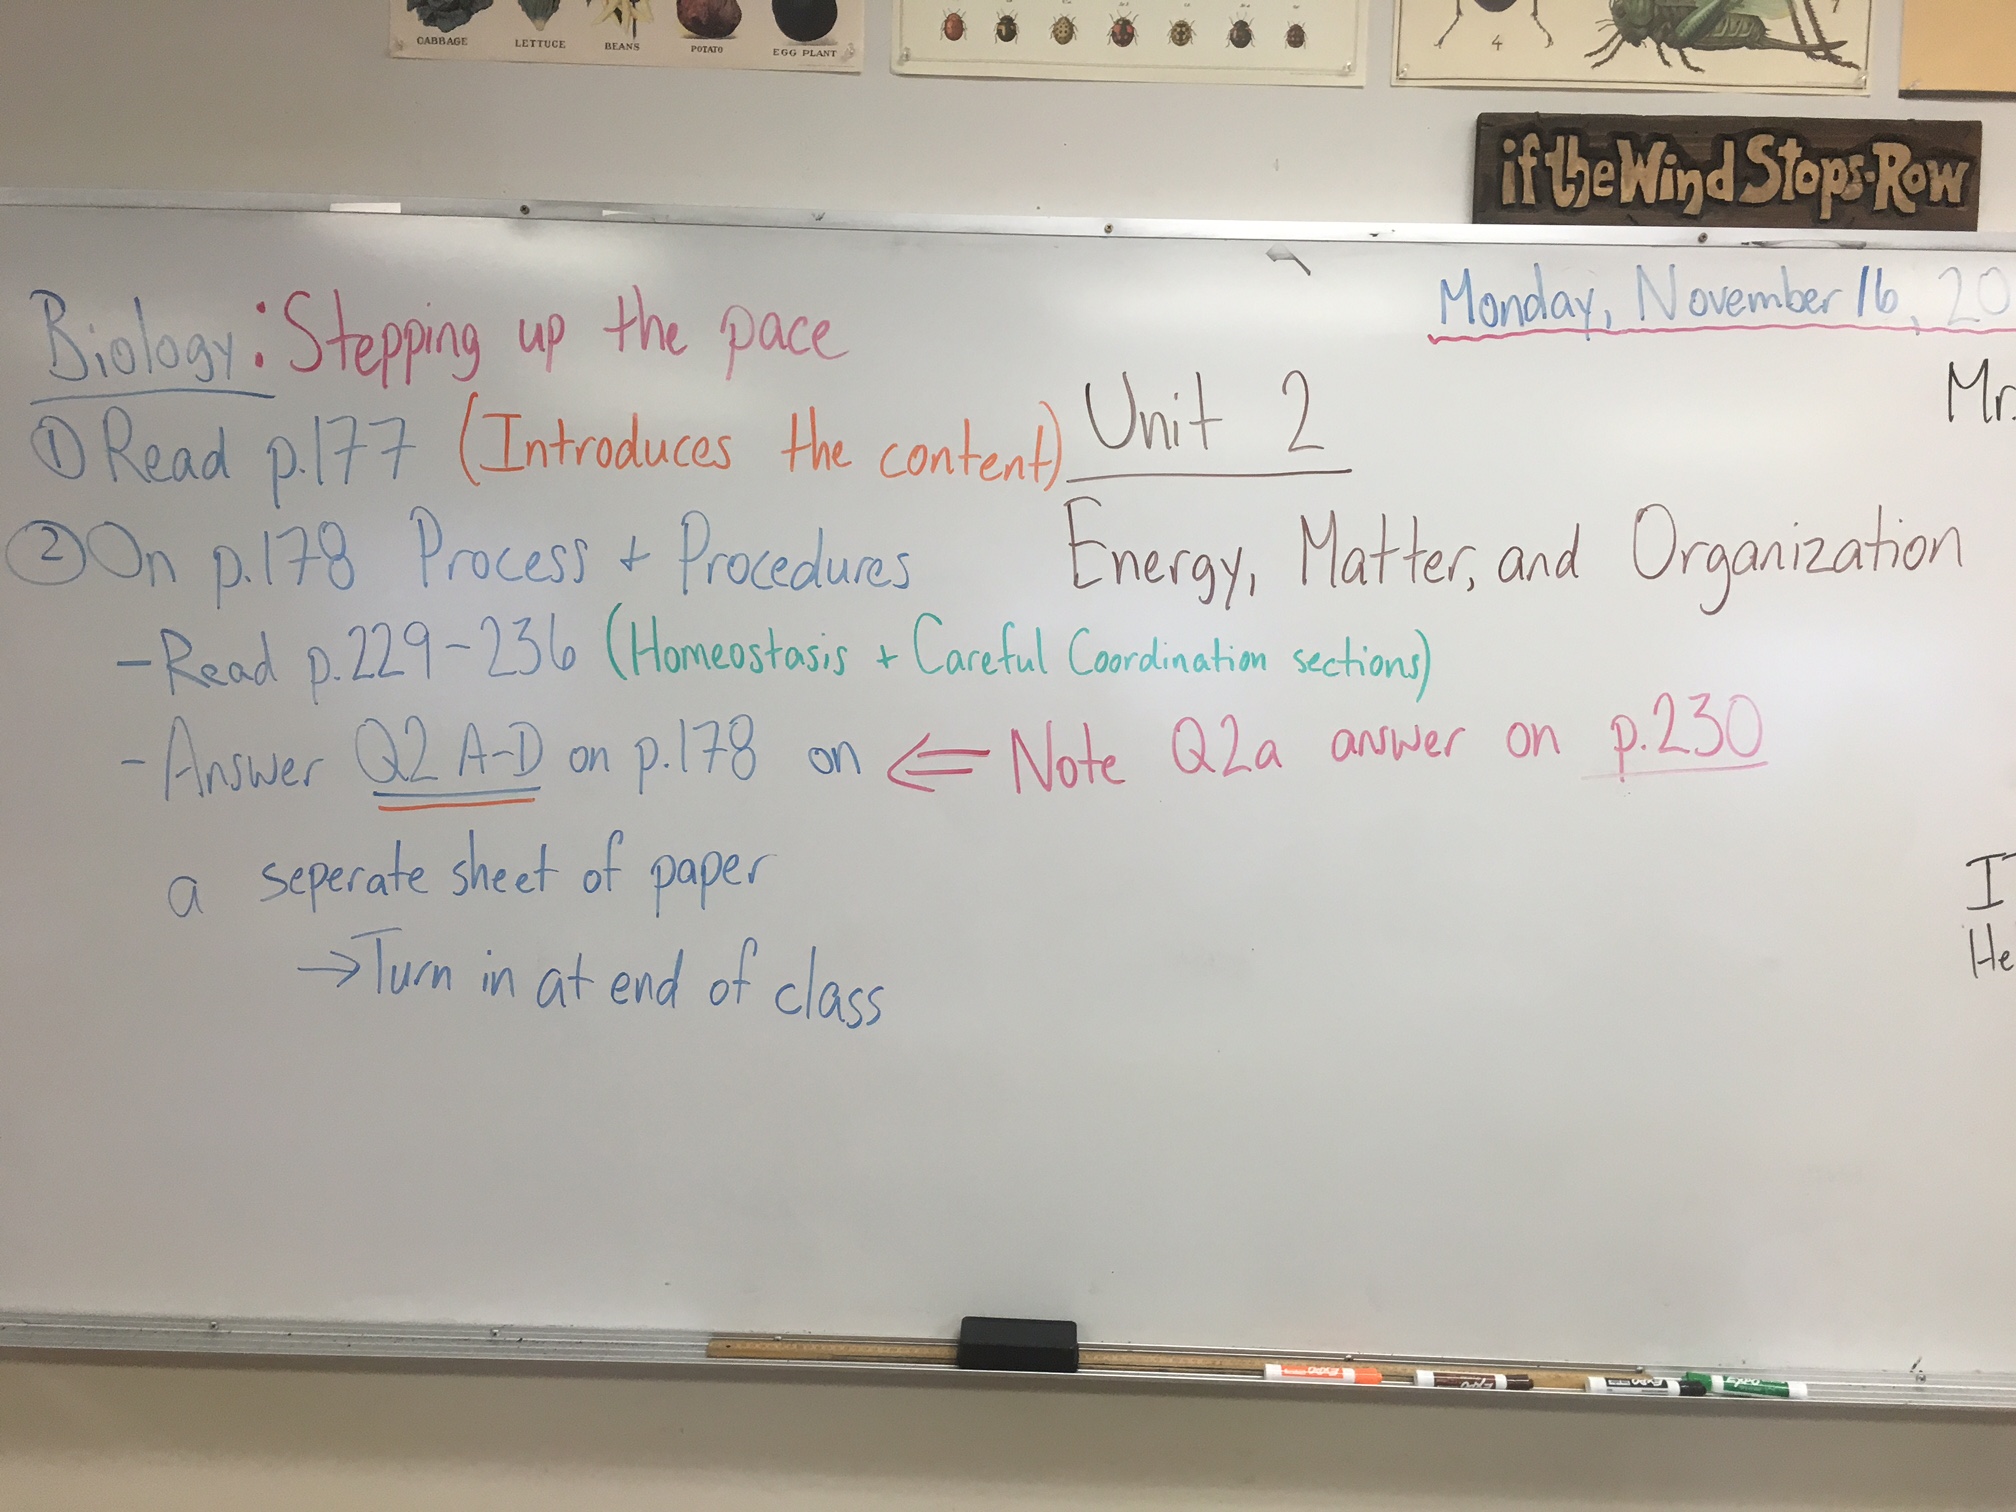 CABBAGE
LETTUCE
BEANS
POTATO
EGG PLANT
4
7
if the Wind Stops-Row
Monday, November 16, 20
Biology: Stepping up the pace
Mr.
① Read p.177 (Introduces the content)
Unit 2
② On p.178 Process + Procedures
Energy, Matter, and Organization
- Read p.229-236 (Homeostasis + Careful Coordination sections)
- Answer Q2 A-D on p.178 on ⇐ Note Q2a answer on p.230
a seperate sheet of paper
→ Turn in at end of class
He
EXPO
EXPO
EXPO
EXPO